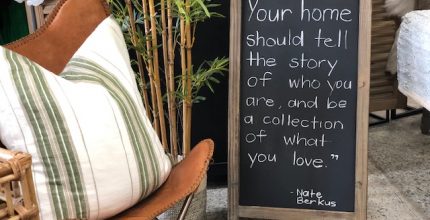 Your home
should tell
the story
of who you
are, and be
a collection
of what
you love."
- Nate
Berkus